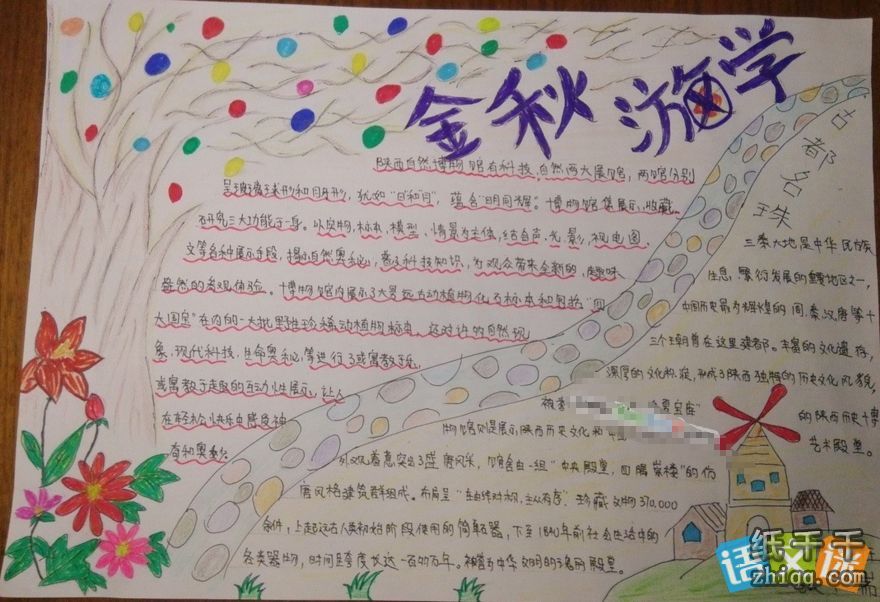 金秋游学
陕西自然博物馆有科技、自然两大展馆，两馆分别
呈现球形和月形，犹如“日和月”，蕴含“明间耀”。博物馆集展示、收藏、
研究三大功能于一身。以实物，标本，模型、情景为主体，结合声、光、影，视电图
文等各种展示手段，揭示自然奥秘，普及科技知识，为观众带来全新的，趣味
盎然的参观体验。博物馆内展示了大量远古动植物化石标本和包括“四
大国宝”在内的一大批野性珍稀动植物标本，还对许多自然现
象、现代科技，生命奥秘等进行了或寓教于乐
或寓教于趣取的互动性展示，让人
在轻松快乐中感受神
奇和奥秘。
古都名珠
三秦大地是中华民族
生息、繁衍发展的重要地区之一，
中国历史最为辉煌的周、秦、汉、唐等十
三个王朝曾在这里建都。丰富的文化遗存，
深厚的文化积淀，形成了陕西独特的历史文化风貌，
被誉 宝库”的陕西历史博
物馆则是展示陕西历史文化和中国 艺术殿堂。
外观着意突出了盛唐风采，馆舍由一组“中央殿堂，四隅崇楼”的仿
唐风格建筑群组成。布局呈“主由绛对称，主从有序”。珍藏文物370,000
余件，上起远古人类初始阶段使用的简单石器，下至1840年前社会生活中的
各类器物，时间跨度长达一百多万年。被誉为中华文明的瑰丽殿堂。
语文迷
纸千千
zhiqq.com